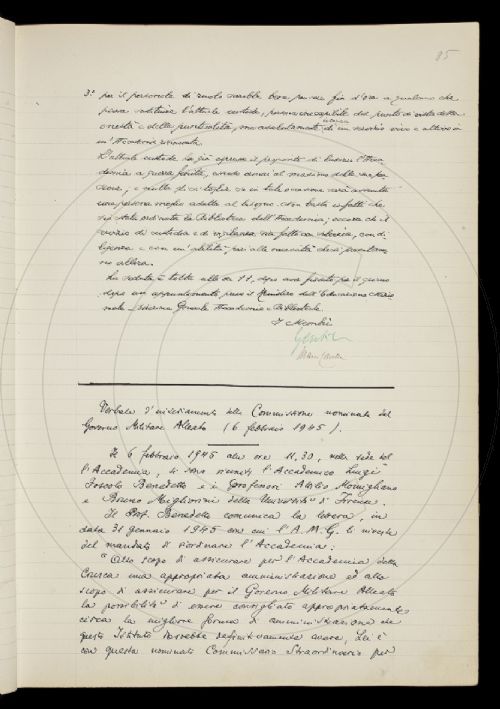 85
3° per il personale di ruolo sarebbe bene pensare fin d'ora a qualcuno che
possa sostituire l'attuale custode, persona ineccepibile dal punto di vista della
onestà e della puntualità, ma assolutamente di un
un'Accademia rinnovata.
L'attuale custode ha già espresso il proposito di lasciare l'Acca-
demia a guerra finita, avendo
e nulla di di meglio se in tale occasione sarà assunta
una persona meglio adatta al bisogno. Non basta infatti che
sia stata ordinata la Biblioteca dell'Accademia; occorre che il
servizio di custodia e di vigilanza sia fatto con solerzia, con di-
ligenza e con un' abilità pari alle necessità che si presentano
no allora.
La seduta è tolta alle ore 11, dopo aver fissato per il giorno
dopo un appuntamento presso il Ministero dell'Educazione Nazio-
nale, Direzione Generale Accademie e Biblioteche.
I Membri
Verbale d'insediamento della Commissione nominata dal
Governo Militare Alleato (6 febbraio 1945).
Il 6 febbraio 1945 alle ore 11,30, nella sede del-
l'Accademia, si sono riuniti l'Accademico Luigi
Foscolo Benedetto e i professori Attilio Momigliano
e Bruno Migliorini della Università di Firenze.
Il Prof. Benedetto comunica la lettera, in
data 31 gennaio 1945 con cui l'A.M.G. li investe
del mandato di riordinare l'Accademia:
"Allo scopo di assicurare per l'Accademia della
Crusca una appropriata amministrazione ed allo
scopo di assicurare per il Governo Militare Alleato
la possibilità di essere consigliato appropriatamente
circa la migliore forma di amministrazione che
questo Istituto dovrebbe definitivamente avere, Lei è
con questa nominato Commissario Straordinario per